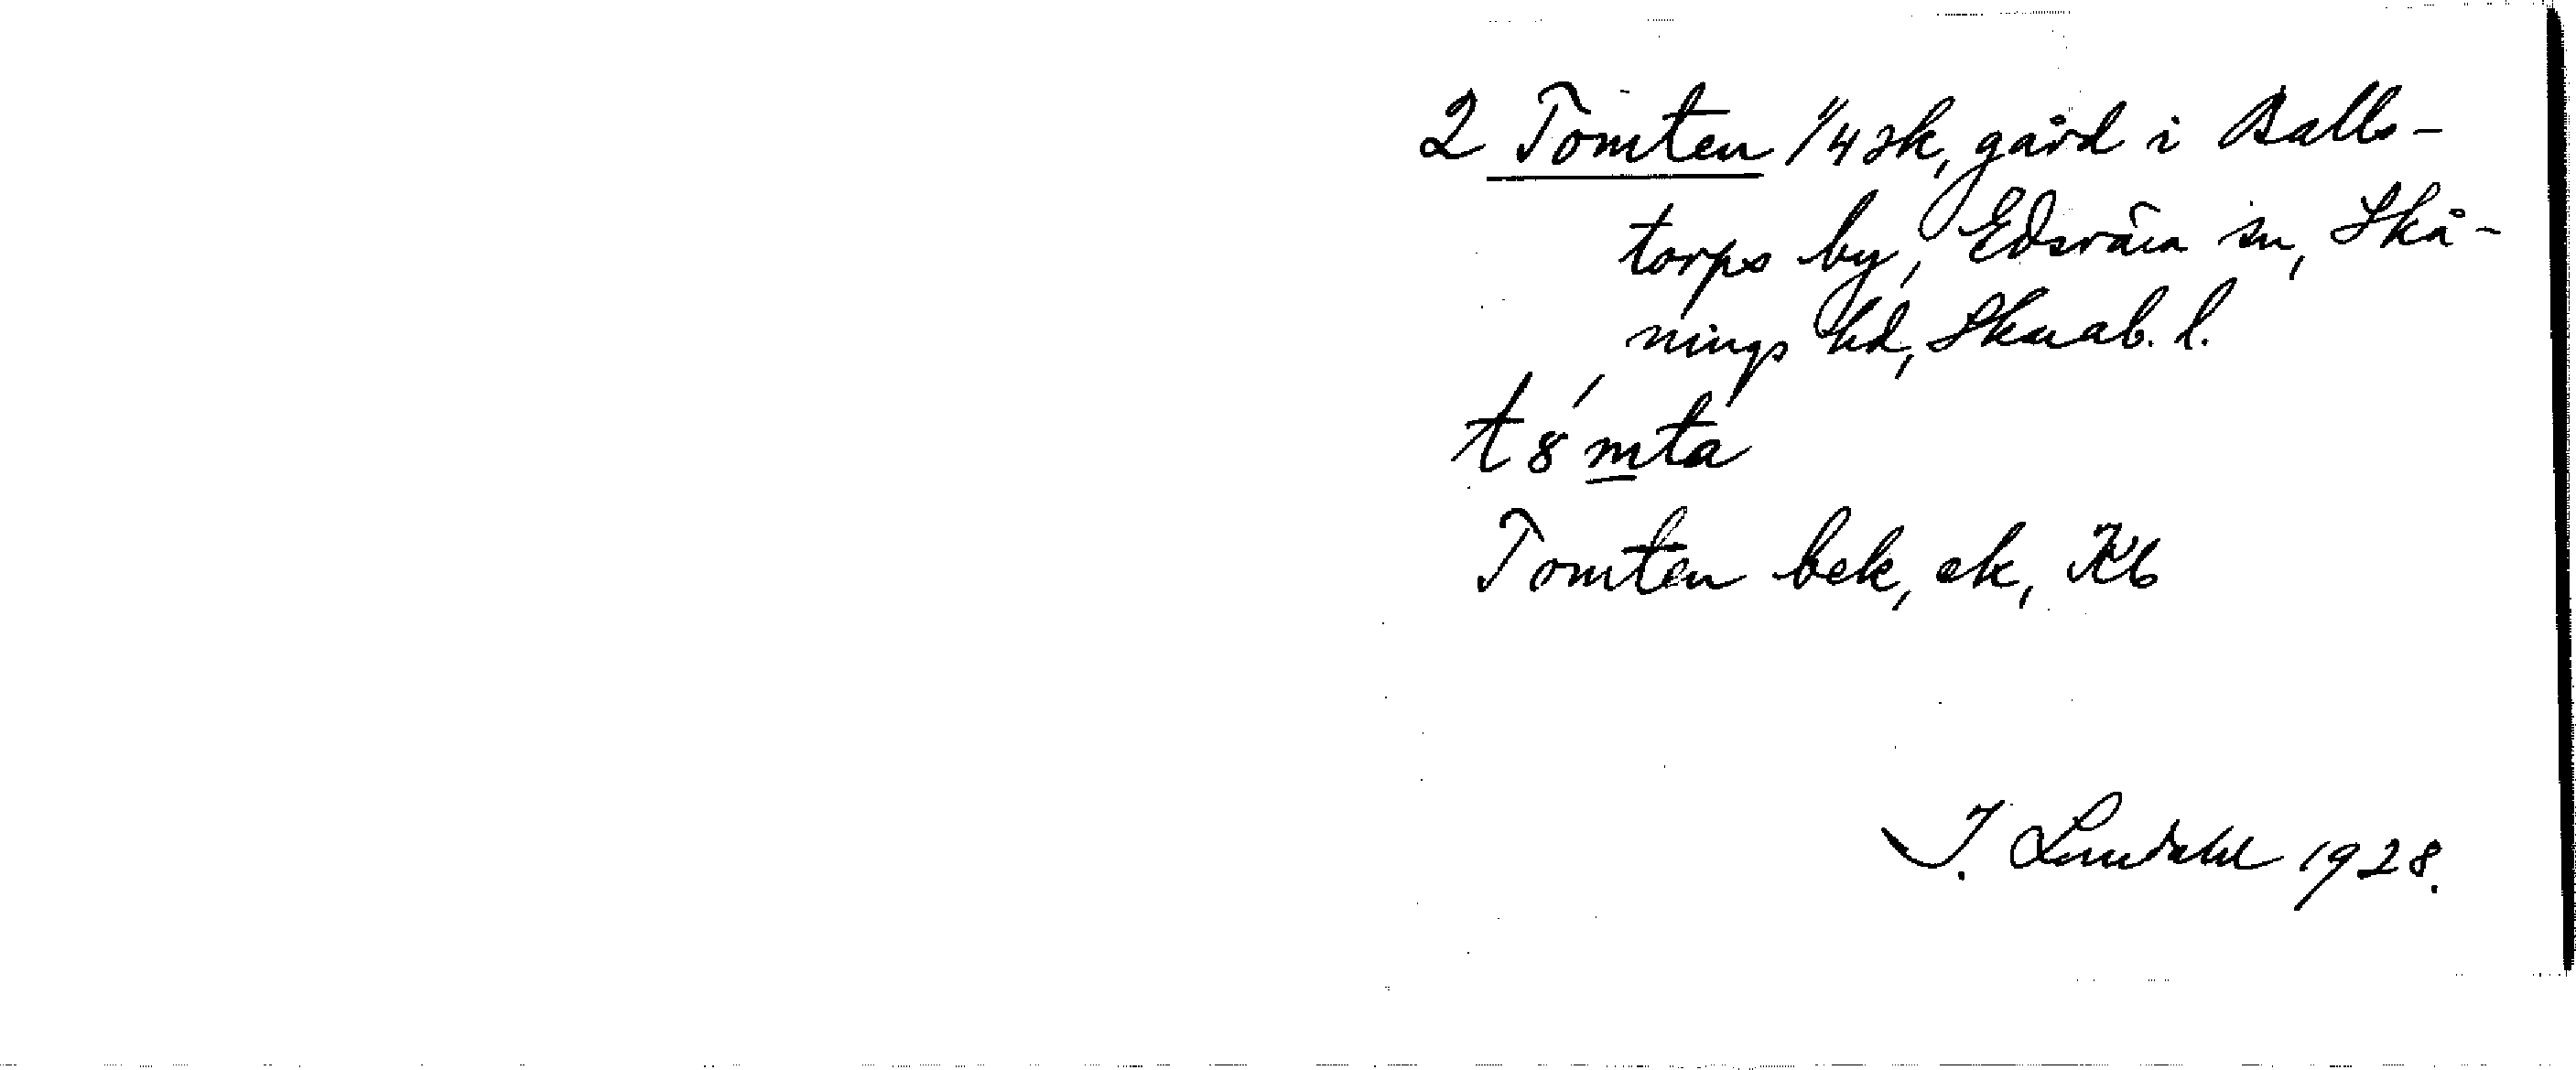 2 Tomten 1/4 sk, gård i Balls-
torps by, Edsvära sn, Skå-
nings hd, Skarab. l.
t8´mta
Tomten bek, ek, Kb
J. Lundahl 1928.